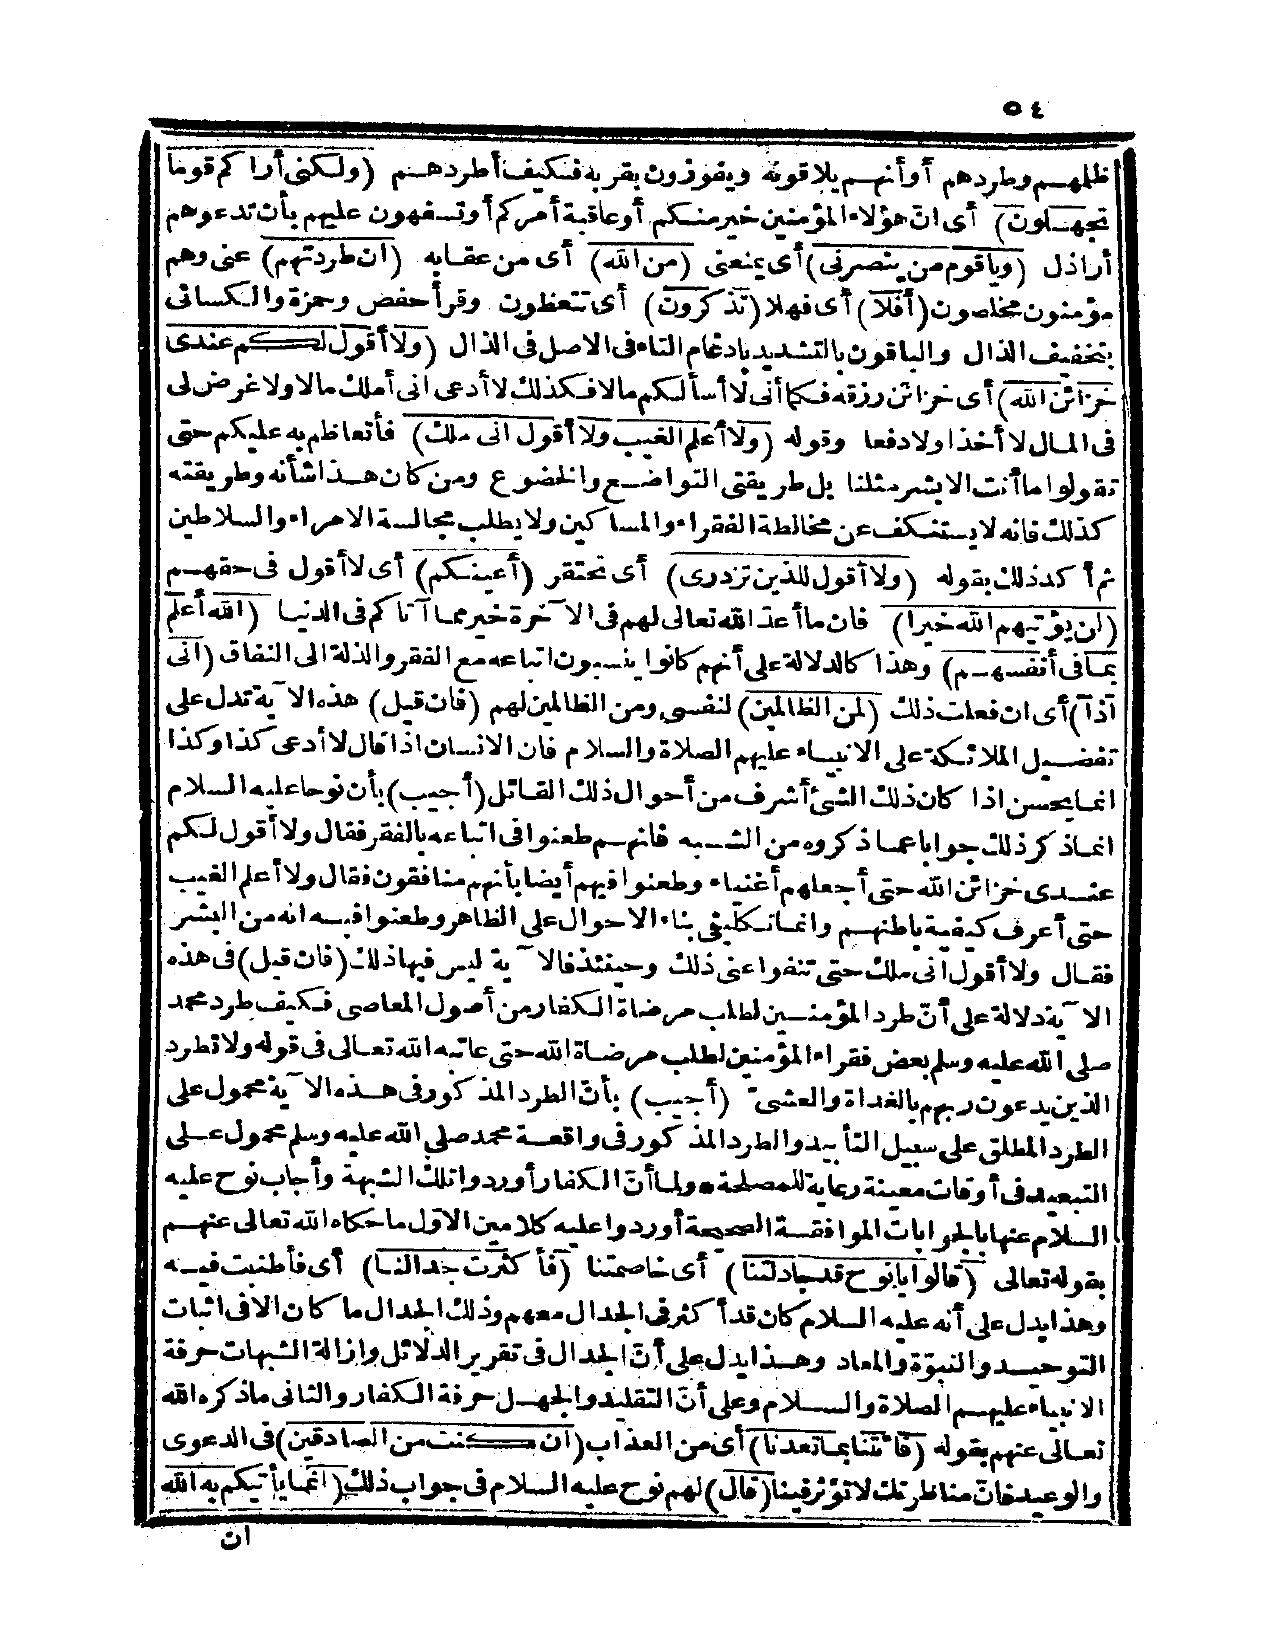 ٥٤
ظلمهم وطردهم أو أنهم يلاقونه ويفوزون بقربه فكيف أطردهم (ولكني أراكم قوما
تجهلون) أى ان هؤلاء المؤمنين خير منكم أو عاقبة أمركم أو تسفهون عليهم بأن تدعوهم
أراذل (وياقوم من ينصرنى) أى يمنعنى (من الله) أى من عقابه (ان طردتهم) عنى وهم
مؤمنون مخلصون (أفلا) أى فهلا (تذكرون) أى تتعظون وقرأ حفص وحمزة والكسائى
بتخفيف الذال والباقون بالتشديد بادغام التاء فى الاصل فى الذال (ولا أقول لكم عندى
خزائن الله) أى خزائن رزقه فكما أنى لا أسألكم مالا فكذلك لا أدعى انى أملك مالا ولا غرض لى
فى المال لا أخذا ولا دفعا وقوله (ولا أعلم الغيب ولا أقول انى ملك) فأتعاظم به عليكم حتى
تقولوا ما أنت الا بشر مثلنا بل طريقتى التواضع والخضوع ومن كان هذا شأنه وطريقته
كذلك فانه لا يستنكف عن مخالطة الفقراء والمساكين ولا يطلب مجالسة الامراء والسلاطين
ثم أكد ذلك بقوله (ولا أقول للذين تزدرى) أى تحتقر (أعينكم) أى لا أقول فى حقهم
(ان يؤتيهم الله خيرا) فان ما أعد الله تعالى لهم فى الآخرة خير مما آتاكم فى الدنيا (الله أعلم
بما فى أنفسهم) وهذا كالدلالة على أنهم كانوا ينسبون اتباعه مع الفقر والذلة الى النفاق (انى
اذا) أى ان فعلت ذلك (لمن الظالمين) لنفسى ومن الظالمين لهم (فان قيل) هذه الآية تدل على
تفضيل الملائكة على الانبياء عليهم الصلاة والسلام فان الانسان اذا قال لا أدعى كذا وكذا
انما يحسن اذا كان ذلك الشئ أشرف من أحوال ذلك القائل (أجيب) بأن نوحا عليه السلام
انما ذكر ذلك جوابا عما ذكروه من الشبه فانهم طعنوا فى اتباعه بالفقر فقال ولا أقول لكم
عندى خزائن الله حتى أجعلهم أغنياء وطعنوا فيهم أيضا بأنهم منافقون فقال ولا أعلم الغيب
حتى أعرف كيفية باطنهم وانما تكليفى بناء الاحوال على الظاهر وطعنوا فيه انه من البشر
فقال ولا أقول انى ملك حتى تنفوا عنى ذلك وحينئذ فالآية ليس فيها ذلك (فان قيل) فى هذه
الآية دلالة على أنّ طرد المؤمنين لطلب مرضاة الكفار من أصول المعاصى فكيف طرد محمد
صلى الله عليه وسلم بعض فقراء المؤمنين لطلب مرضاة الله حتى عاتبه الله تعالى فى قوله ولا تطرد
الذين يدعون ربهم بالغداة والعشىّ (أجيب) بأنّ الطرد المذكور فى هذه الآية محمول على
الطرد المطلق على سبيل التأبيد والطرد المذكور فى واقعة محمد صلى الله عليه وسلم محمول على
التبعيد فى أوقات معينة رعاية للمصلحة * ولما أنّ الكفار أوردوا تلك الشبهة وأجاب نوح عليه
السلام عنها بالجوابات الموافقة الصحيحة أوردوا عليه كلامين الاوّل ما حكاه الله تعالى عنهم
بقوله تعالى (قالوا يا نوح قد جادلتنا) أى خاصمتنا (فأكثرت جدالنا) أى فأطنبت فيه
وهذا يدل على أنه عليه السلام كان قد أكثر فى الجدال معهم وذلك الجدال ما كان الا فى اثبات
التوحيد والنبوّة والمعاد وهذا يدل على أنّ الجدال فى تقرير الدلائل وازالة الشبهات حرفة
الانبياء عليهم الصلاة والسلام وعلى أنّ التقليد والجهل حرفة الكفار والثانى ما ذكره الله
تعالى عنهم بقوله (فأتنا بما تعدنا) أى من العذاب (ان كنت من الصادقين) فى الدعوى
والوعيد فانّ مناظرتك لا تؤثر فينا (قال) لهم نوح عليه السلام فى جواب ذلك (انما يأتيكم به الله
ان